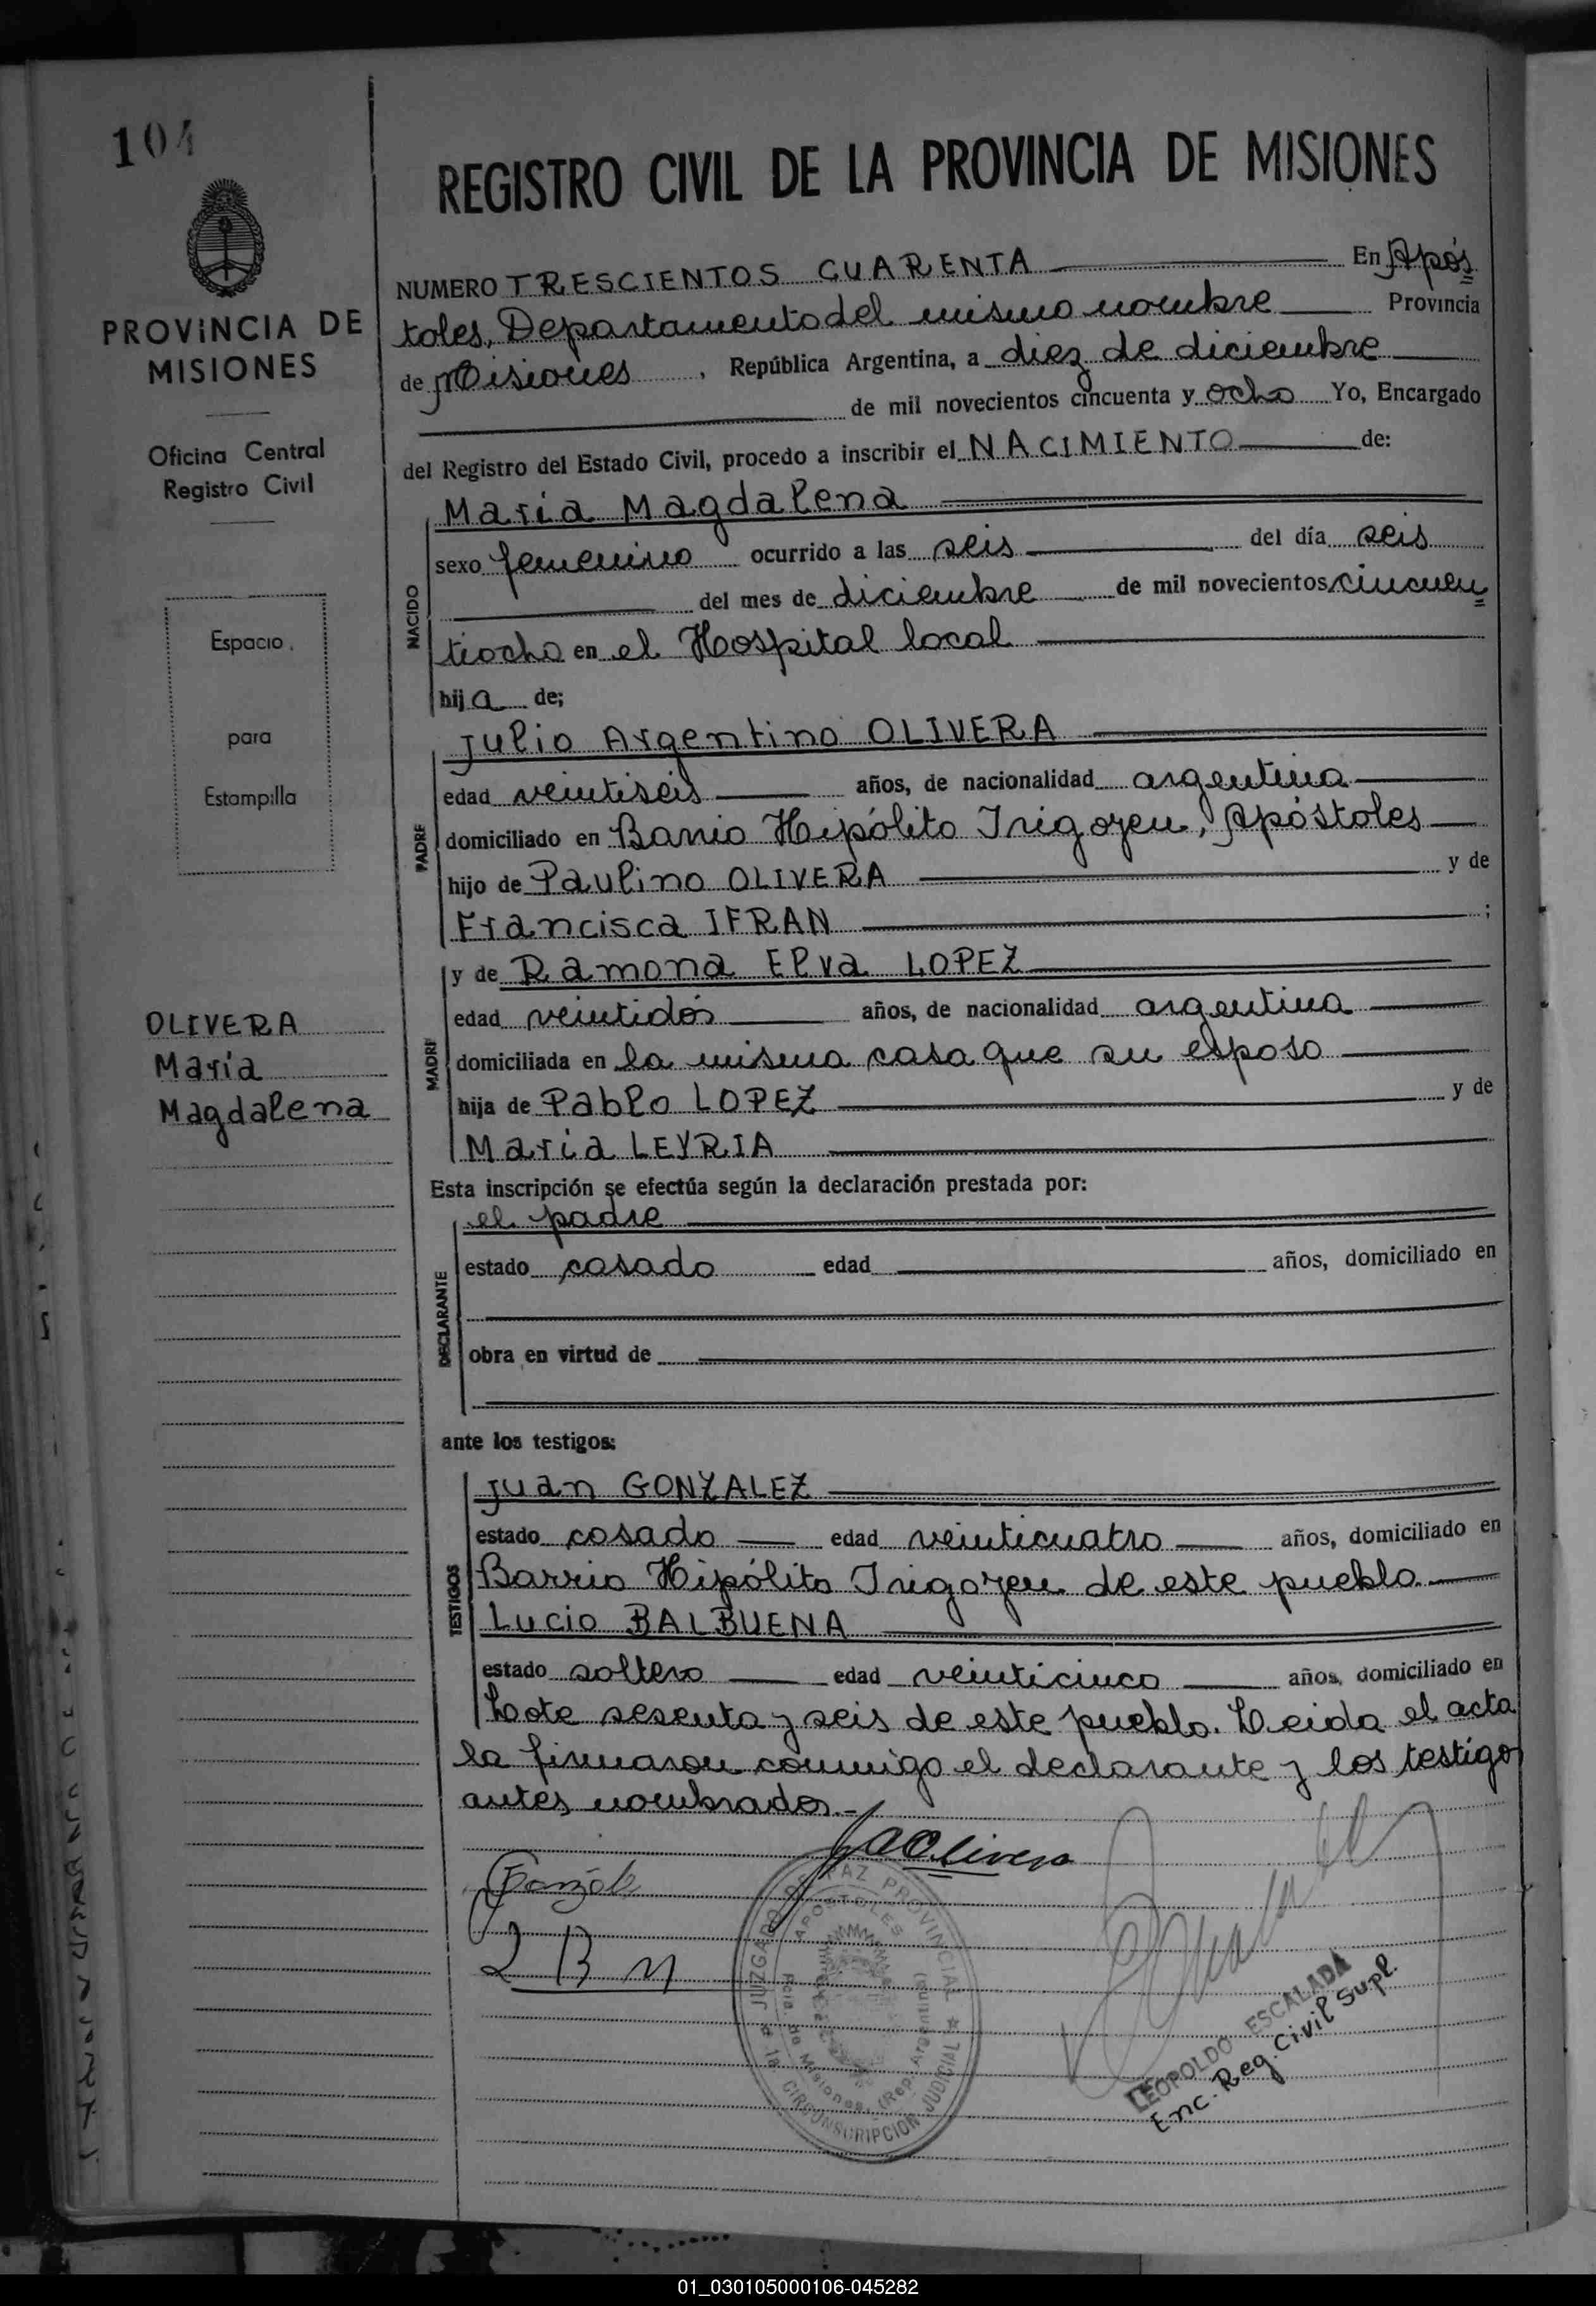 104
REGISTRO CIVIL DE LA PROVINCIA DE MISIONES
PROVINCIA DE
MISIONES
Oficina Central
Registro Civil
Espacio
para
Estampilla
OLIVERA
María
Magdalena
NUMERO TRESCIENTOS CUARENTA En Após
toles, Departamento del mismo nombre Provincia
de Misiones, República Argentina, a diez de diciembre
de mil novecientos cincuenta y ocho Yo, Encargado
del Registro del Estado Civil, procedo a inscribir el NACIMIENTO de:
NACIDO
María Magdalena
sexo femenino ocurrido a las seis del día seis
del mes de diciembre de mil novecientos cincuen
tiocho en el Hospital local
hija de;
PADRE
Julio Argentino OLIVERA
edad veintiseis años, de nacionalidad argentina
domiciliado en Barrio Hipólito Irigoyen, Apóstoles
hijo de Paulino OLIVERA y de
Francisca IFRAN ;
MADRE
y de Ramona Elva LOPEZ
edad veintidós años, de nacionalidad argentina
domiciliada en la misma casa que su esposo
hija de Pablo LOPEZ y de
María LEYRIA
Esta inscripción se efectúa según la declaración prestada por:
DECLARANTE
el padre
estado casado edad años, domiciliado en
obra en virtud de
ante los testigos:
TESTIGOS
Juan GONZALEZ
estado casado edad veinticuatro años, domiciliado en
Barrio Hipólito Irigoyen de este pueblo
Lucio BALBUENA
estado soltero edad veinticinco años, domiciliado en
Lote sesenta y seis de este pueblo. Leida el acta
la firmaron conmigo el declarante y los testigo
antes nombrados.-
JAOlivera
LBM
JUZGADO DE PAZ PROVINCIAL
APOSTOLES
Pcia. de Misiones (Rep. Argentina)
1a. CIRCUNSCRIPCION JUDICIAL
LEOPOLDO ESCALADA
Enc. Reg. Civil Supl.
01_030105000106-045282